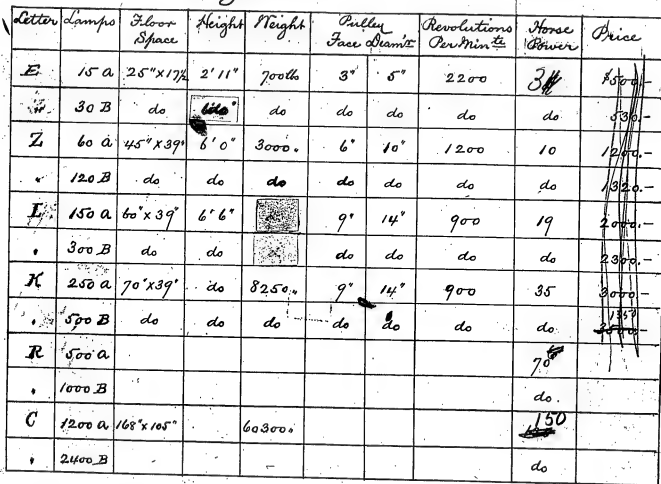 Letter Lamps Floor Space Height Weight Pulley Face Diam'r Revolutions Per Minte Horse Power Price
E 15 A 25"X17½ 2' 11" 700 lbs 3" 5" 2200 3 $500.-
" 30 B do do do do do do do 530.-
Z 60 A 45"X39" 6' 0" 3000 " 6" 10" 1200 10 1200.-
" 120 B do do do do do do do 1320.-
L 150 A 60"X39" 6' 6" 9" 14" 900 19 2000.-
" 300 B do do do do do do 2300.-
K 250 A 70"X39" do 8250 " 9" 14" 900 35 3000.-
" 500 B do do do do do do do 3500.-
R 500 A 70
" 1000 B do.
C 1200 A 168"x105" 60300 " 150
" 2400 B do